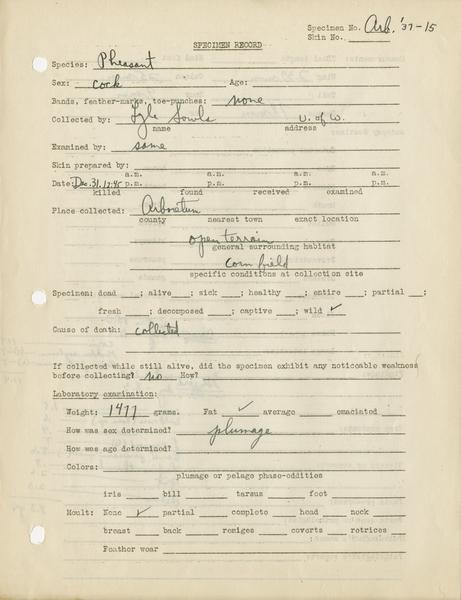 Specimen No. Arb. '37-15
Skin No.
SPECIMEN RECORD
Species: Pheasant
Sex: cock Age:
Bands, feather-marks, toe-punches: none
Collected by: Lyle Sowls U. of W.
name address
Examined by: same
Skin prepared by:
a.m. a.m. a.m. a.m.
Date: Dec. 31, p.m. p.m. p.m. p.m.
killed found received examined
Place collected: Arboretum
county nearest town exact location
open terrain
general surrounding habitat
corn field
specific conditions at collection site
Specimen: dead ___; alive___; sick ___; healthy ___; entire ___; partial ___;
fresh ___; decomposed ___; captive ___; wild ✓
Cause of death: collected
If collected while still alive, did the specimen exhibit any noticeable weakness
before collecting? no How?
Laboratory examination:
Weight: 1477 grams. Fat ✓ average emaciated
How was sex determined? plumage
How was age determined?
Colors:
plumage or pelage phase-oddities
iris bill tarsus foot
Moult: None ✓ partial complete head neck
breast back remiges coverts retrices
Feather wear